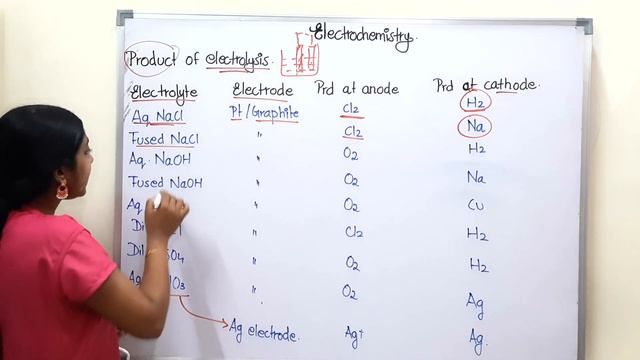 Electrochemistry.
Product of electrolysis.
Electrolyte Electrode Prd at anode Prd at cathode.
Aq NaCl Pt/Graphite Cl2 H2
Fused NaCl " Cl2 Na
Aq. NaOH " O2 H2
Fused NaOH " O2 Na
Aq " O2 Cu
Di " Cl2 H2
Dil O4 " O2 H2
Ag O3 " O2 Ag
Ag electrode. Ag+ Ag.